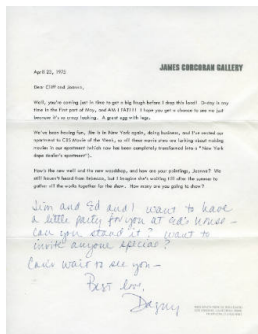 JAMES CORCORAN GALLERY
April 20, 1972
Dear Cliff and Jeannie,
Well, you're coming just in time to get a big laugh before I drop this load! D-day is any
time in the first part of May, and AM I FAT!!! I hope you get a chance to see me just
because it's so crazy looking. A great egg with legs.
We've been having fun, Jim is in New York again, doing business, and I've rented our
apartment to CBS Movie of the Week, so all these movie stars are lurking about making
movies in our apartment (which now has been completely transformed into a "New York
dope dealer's apartment").
How's the new wall and the new woodshop, and how are your paintings, Jeannie? We
still haven't heard from but I imagine she's waiting till after the summer to
gather all the works together for the show. How many are you going to draw?
Jim and Ed and I want to have
a little party for you at Ed's house -
can you stand it? want to
invite anyone special?
Can't wait to see you -
Best love,
Dagny